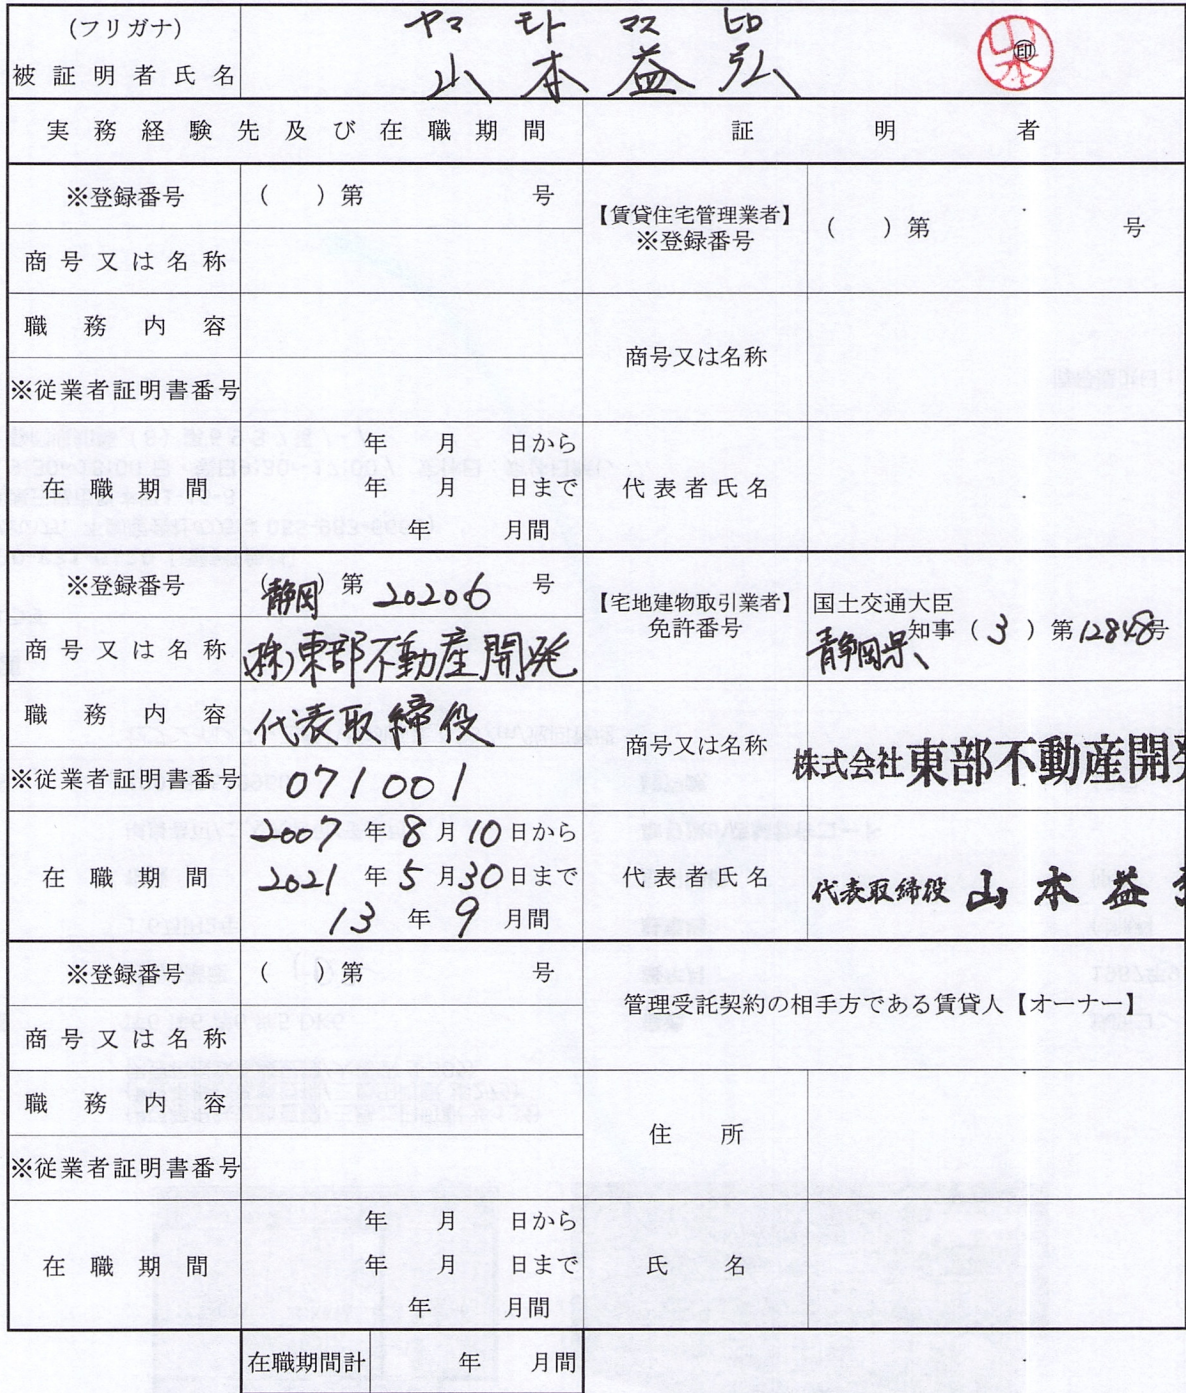 (フリガナ) ヤマ モト マス ヒロ
被証明者氏名 山本益弘 山本 ㊞
実務経験先及び在職期間 証明者
※登録番号 ( ) 第 号
【賃貸住宅管理業者】
※登録番号 ( ) 第 号
商号又は名称
職務内容
商号又は名称
※従業者証明書番号
年 月 日から
在職期間 年 月 日まで
年 月間
代表者氏名
※登録番号 (静岡) 第 20206 号
【宅地建物取引業者】
免許番号
国土交通大臣
静岡県 知事 (3) 第12848号
商号又は名称 (株)東部不動産開発
職務内容 代表取締役
商号又は名称 株式会社東部不動産開発
※従業者証明書番号 071001
2007 年 8 月 10 日から
在職期間 2021 年 5 月 30 日まで
13 年 9 月間
代表者氏名 代表取締役 山本益
※登録番号 ( ) 第 号
管理受託契約の相手方である賃貸人【オーナー】
商号又は名称
職務内容
住所
※従業者証明書番号
年 月 日から
在職期間 年 月 日まで
年 月間
氏名
在職期間計 年 月間